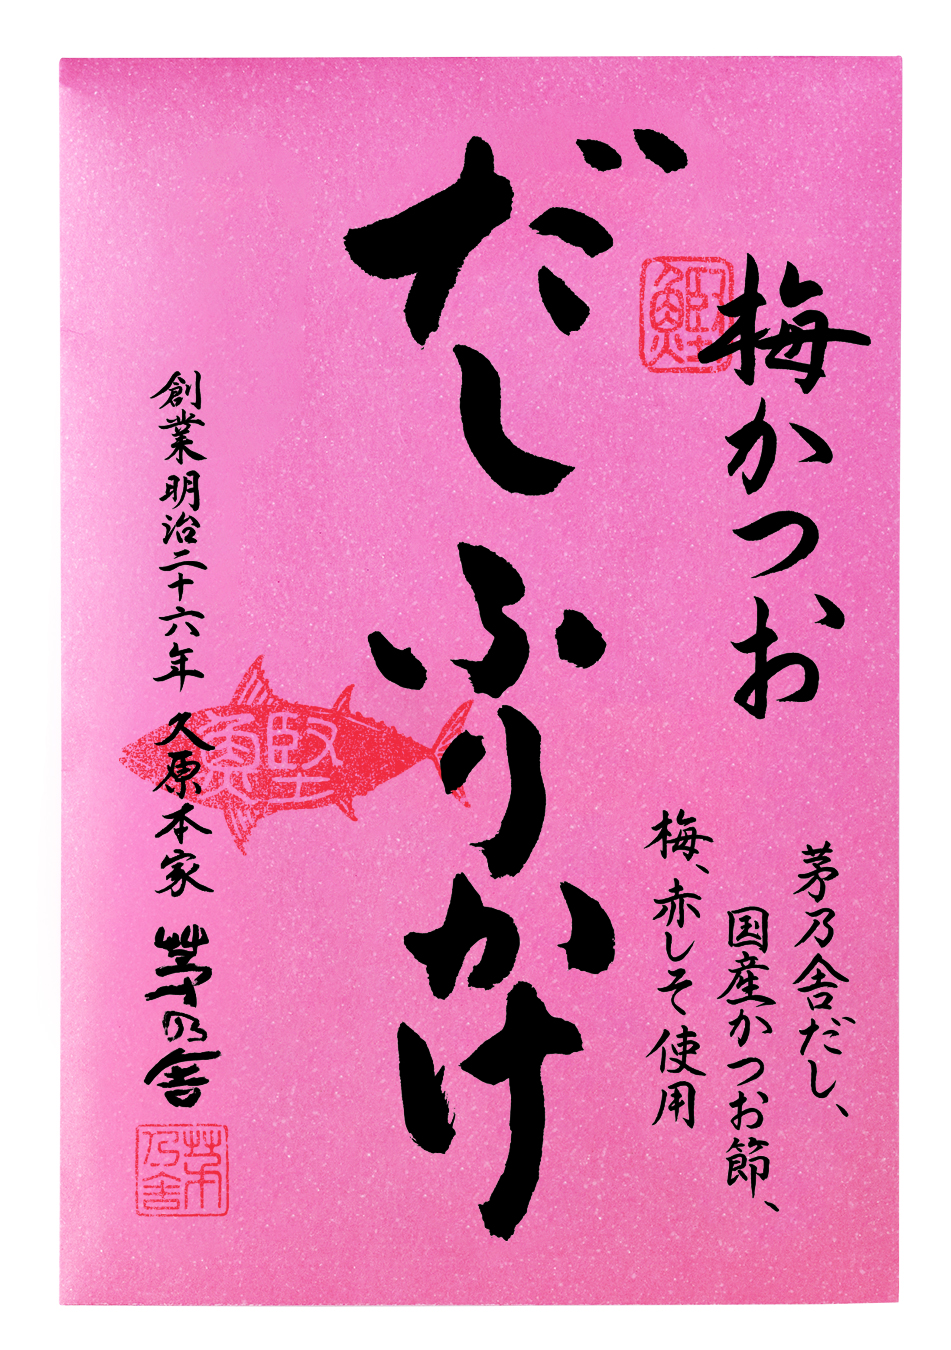 梅かつお
だしふりかけ
茅乃舎だし、
国産かつお節、
梅、赤しそ使用
創業明治二十六年 久原本家 茅乃舎
鰹
鰹
茅乃舎